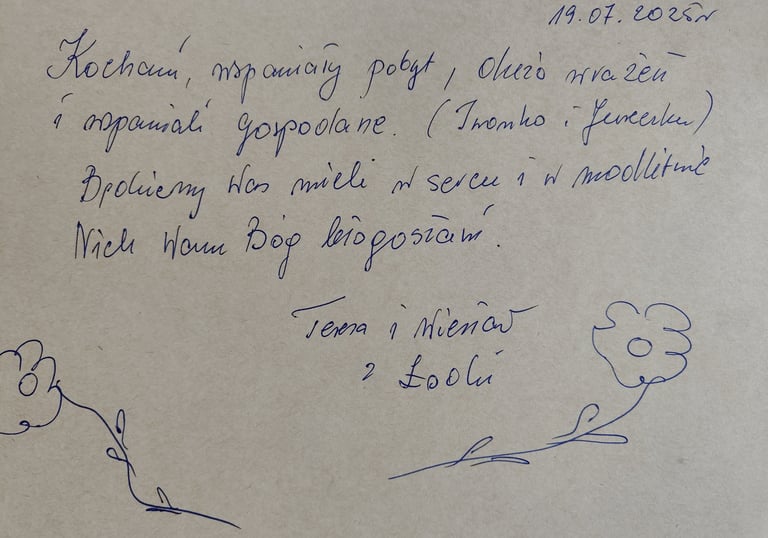 19.07.2025r
Kochani, wspaniały pobyt, dużo wrażeń
i wspaniali Gospodarze. (Iwonko i Jureczku)
Będziemy Was mieli w sercu i w modlitwie
Niech Wam Bóg błogosławi.
Teresa i Wiesław
z Łodzi